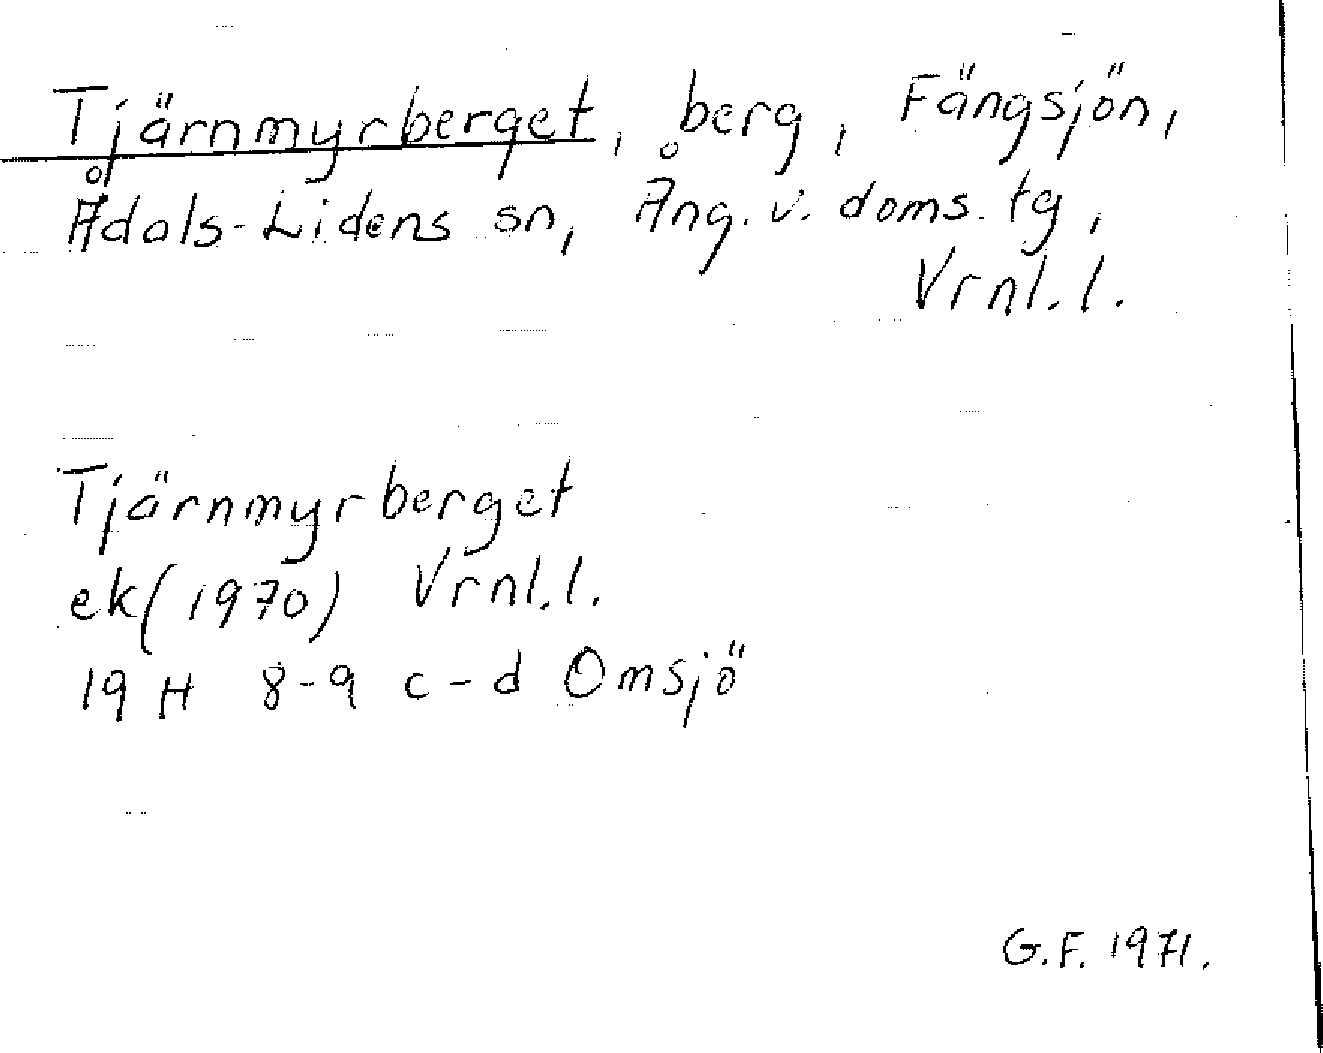 Tjärnmyrberget, berg, Fängsjön,
Ådals-Lidens sn, Ång. v. doms. tg,
Vrnl. l.
Tjärnmyrberget
ek(1970) Vrnl. l.
19 H 8-9 c-d Omsjö
G. F. 1971.